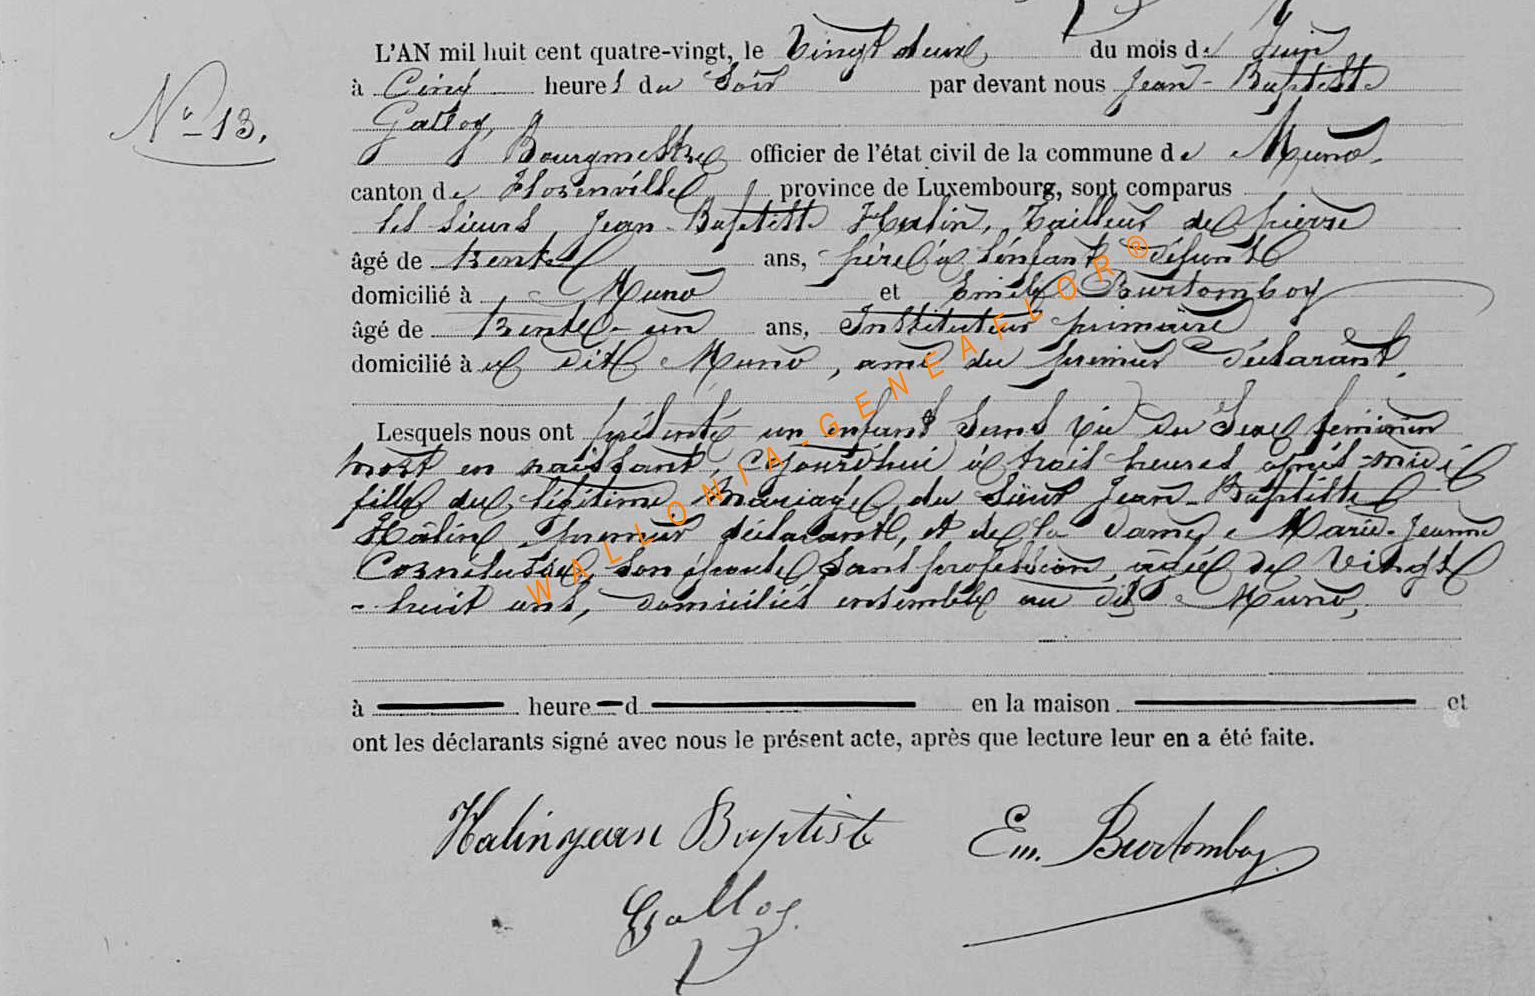 L'AN mil huit cent quatre-vingt, le Vingt deux du mois de Juin
à Cinq heures du Soir par devant nous Jean-Baptiste
N° 13.
Galloy,
Bourgmestre officier de l'état civil de la commune de Muno,
canton de Florenville province de Luxembourg, sont comparus
les sieurs Jean-Baptiste Halin, Tailleur de pierre
âgé de trente ans, père de l'enfant défunt
domicilié à Muno et Emile Burtomboy
âgé de trente-un ans, Instituteur primaire
domicilié à dit Muno, ami du premier déclarant,
Lesquels nous ont présenté un enfant sans vie du Sexe féminin
mort en naissant, cejourd'hui à trois heures après-midi
fille du légitime mariage du sieur Jean-Baptiste
Halin, premier déclarant, et de la Dame Marie-Jeanne
Cornélusse, son épouse, sans profession, âgée de Vingt
-huit ans, domiciliés ensemble au dit Muno,
à heure d en la maison et
ont les déclarants signé avec nous le présent acte, après que lecture leur en a été faite.
Halin jean Baptiste Em. Burtomboy
Galloy
WALLONIA-GENEAFLOR®